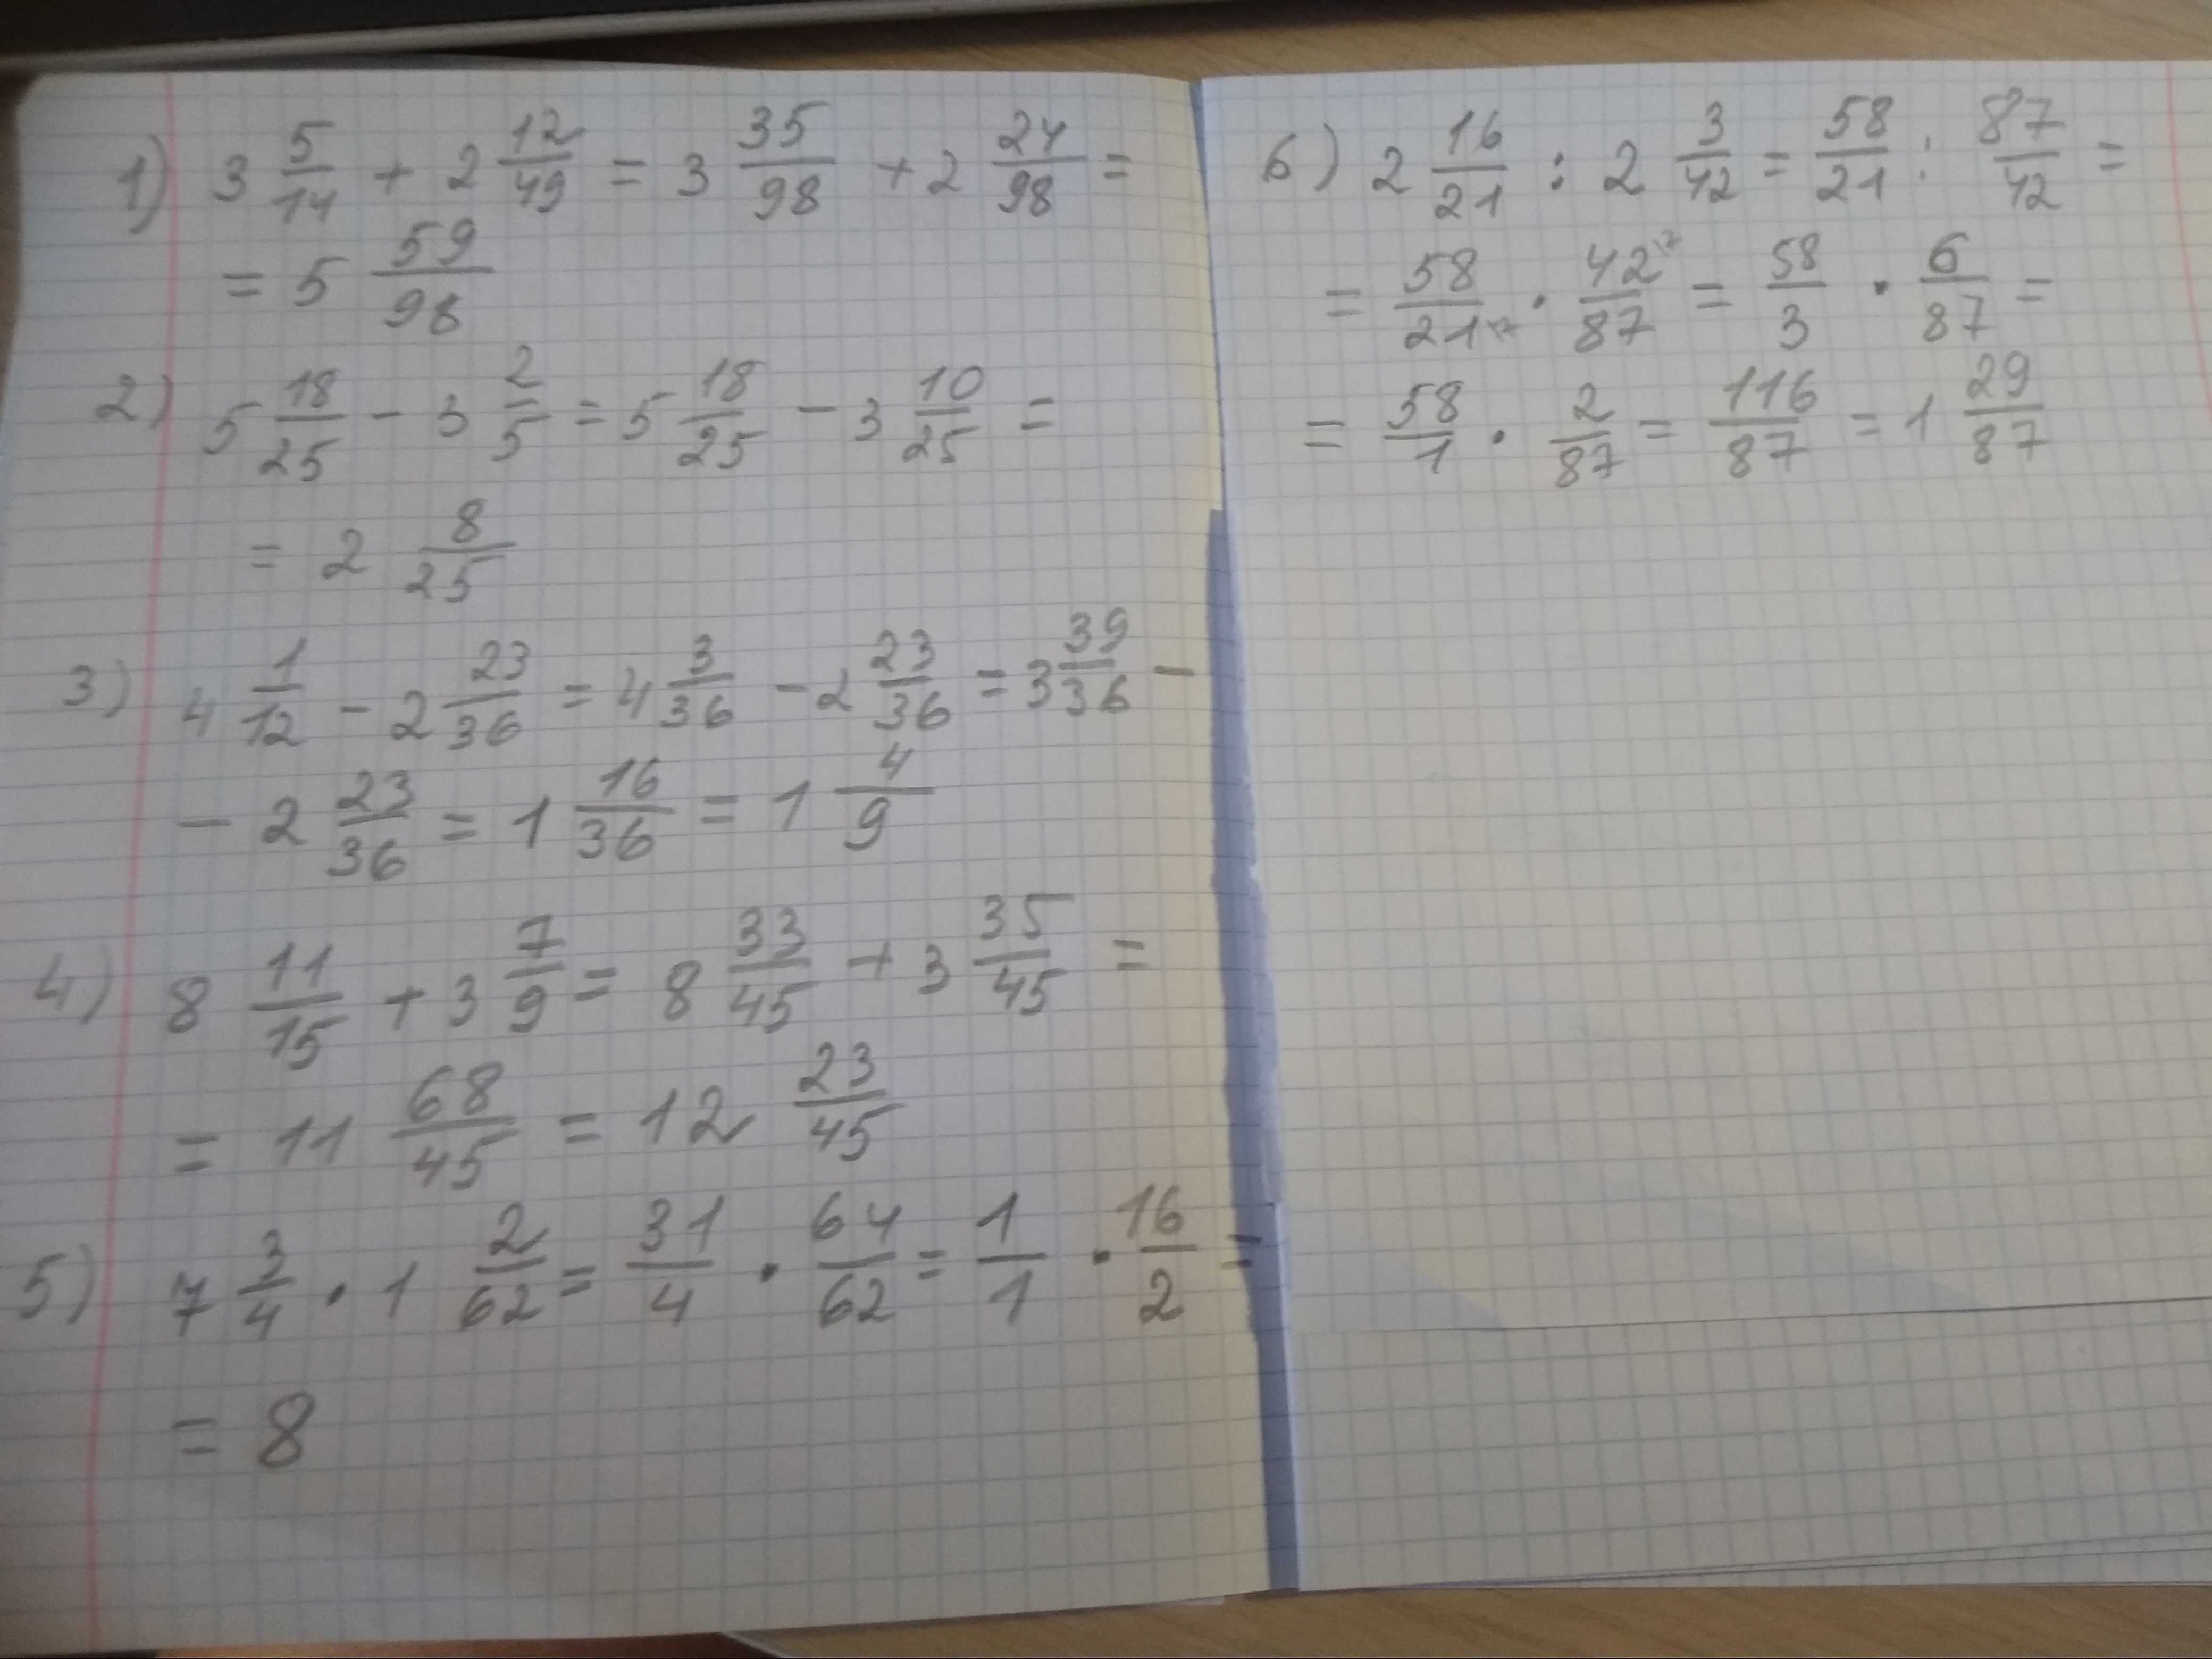 1) 3 5/14 + 2 12/49 = 3 35/98 + 2 24/98 =
= 5 59/98
2) 5 18/25 - 3 2/5 = 5 18/25 - 3 10/25 =
= 2 8/25
3) 4 1/12 - 2 23/36 = 4 3/36 - 2 23/36 = 3 39/36 -
- 2 23/36 = 1 16/36 = 1 4/9
4) 8 11/15 + 3 7/9 = 8 33/45 + 3 35/45 =
= 11 68/45 = 12 23/45
5) 7 3/4 · 1 2/62 = 31/4 · 64/62 = 1/1 · 16/2 =
= 8
6) 2 16/21 : 2 3/42 = 58/21 : 87/42 =
= 58/21 :7 · 42 :7/87 = 58/3 · 6/87 =
= 58/1 · 2/87 = 116/87 = 1 29/87